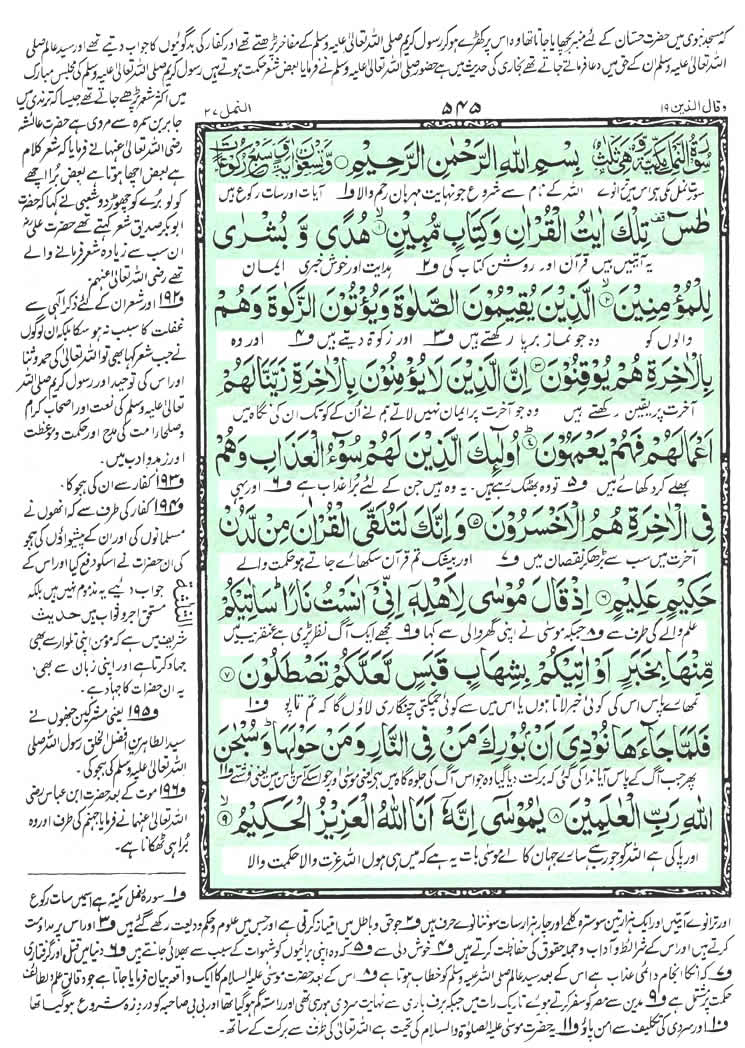 کہ مسجد نبوی میں حضرت حسان کے لئے منبر بچھایا جاتا تھا وہ اس پر کھڑے ہو کر رسول کریم صلی اللہ تعالیٰ علیہ وسلم کے مفاخر پڑھتے تھے اور کفار کی بدگوئیوں کا جواب دیتے تھے اور سید عالم صلی
اللہ تعالیٰ علیہ وسلم ان کے حق میں دعا فرماتے جاتے تھے بخاری کی حدیث میں ہے حضور صلی اللہ تعالیٰ علیہ وسلم نے فرمایا بعض شعر حکمت ہوتے ہیں رسول کریم صلی اللہ تعالیٰ علیہ وسلم کی مجلس مبارک
وقال الذین ۱۹
۵۴۵
النمل ۲۷
سورۃ النمل مکیۃ وھی ثلث بسم اللہ الرحمن الرحیم وتسعون ایۃ وسبع رکوعات
سورۃ نمل مکی ہے اس میں ترانوے اللہ کے نام سے شروع جو نہایت مہربان رحم والا ف۱ آیات اور سات رکوع ہیں
طٰسٓ تِلْكَ اٰیٰتُ الْقُرْاٰنِ وَكِتَابٍ مُّبِیْنٍ ۱ هُدًى وَّ بُشْرٰى
یہ آیتیں ہیں قرآن اور روشن کتاب کی ف۲ ہدایت اور خوش خبری ایمان
لِلْمُؤْمِنِیْنَ ۲ الَّذِیْنَ یُقِیْمُوْنَ الصَّلٰوةَ وَیُؤْتُوْنَ الزَّكٰوةَ وَهُمْ
والوں کو وہ جو نماز برپا رکھتے ہیں ف۳ اور زکوٰۃ دیتے ہیں ف۴ اور وہ
بِالْاٰخِرَةِ هُمْ یُوْقِنُوْنَ ۳ اِنَّ الَّذِیْنَ لَا یُؤْمِنُوْنَ بِالْاٰخِرَةِ زَیَّنَّا لَهُمْ
آخرت پر یقین رکھتے ہیں وہ جو آخرت پر ایمان نہیں لاتے ہم نے ان کے کوتک ان کی نگاہ میں
اَعْمَالَهُمْ فَهُمْ یَعْمَهُوْنَ ۴ اُولٰٓىِٕكَ الَّذِیْنَ لَهُمْ سُوْٓءُ الْعَذَابِ وَهُمْ
بھلے کر دکھائے ہیں ف۵ تو وہ بھٹک رہے ہیں۔ یہ وہ ہیں جن کے لئے برا عذاب ہے ف۶ اور یہی
فِی الْاٰخِرَةِ هُمُ الْاَخْسَرُوْنَ ۵ وَاِنَّكَ لَتُلَقَّى الْقُرْاٰنَ مِنْ لَّدُنْ
آخرت میں سب سے بڑھ کر نقصان میں ف۷ اور بیشک تم قرآن سکھائے جاتے ہو حکمت والے
حَكِیْمٍ عَلِیْمٍ ۶ اِذْ قَالَ مُوْسٰى لِاَهْلِهٖۤ اِنِّیْۤ اٰنَسْتُ نَارًا سَاٰتِیْكُمْ
علم والے کی طرف سے ف۸ جبکہ موسیٰ نے اپنی گھر والی سے کہا ف۹ مجھے ایک آگ نظر پڑی ہے عنقریب میں
مِّنْهَا بِخَبَرٍ اَوْ اٰتِیْكُمْ بِشِهَابٍ قَبَسٍ لَّعَلَّكُمْ تَصْطَلُوْنَ ۷
تمہارے پاس اس کی کوئی خبر لاتا ہوں یا اس میں سے کوئی چمکتی چنگاری لاؤں گا کہ تم تاپو ف۱۰
فَلَمَّا جَآءَهَا نُوْدِیَ اَنْۢ بُوْرِكَ مَنْ فِی النَّارِ وَمَنْ حَوْلَهَا وَسُبْحٰنَ
پھر جب آگ کے پاس آیا ندا کی گئی کہ برکت دیا گیا وہ جو اس آگ کی جلوہ گاہ میں ہے یعنی موسیٰ اور جو اسکے آس پاس ہیں یعنی فرشتے ف۱۱
اللّٰهِ رَبِّ الْعٰلَمِیْنَ ۸ یٰمُوْسٰۤى اِنَّهٗۤ اَنَا اللّٰهُ الْعَزِیْزُ الْحَكِیْمُ ۹
اور پاکی ہے اللہ کو جو رب ہے سارے جہان کا اے موسیٰ بات یہ ہے کہ میں ہی ہوں اللہ عزت والا حکمت والا
میں اکثر شعر پڑھے جاتے تھے جیسا کہ ترمذی میں
جابر بن سمرہ سے مروی ہے حضرت عائشہ
رضی اللہ تعالیٰ عنہا نے فرمایا کہ شعر کلام
ہے بعض اچھا ہوتا ہے بعض برا اچھے
کو لو برے کو چھوڑ دو شعبی نے کہا کہ حضرت
ابوبکر صدیق شعر کہتے تھے حضرت علی
ان سب سے زیادہ شعر فرمانے والے
تھے رضی اللہ تعالیٰ عنہم۔
ف۱۹۲ اور شعر ان کے لئے ذکر الٰہی سے
غفلت کا سبب نہ ہو سکا بلکہ ان لوگوں
نے جب شعر کہا بھی تو اللہ تعالیٰ کی حمد و ثنا
اور اس کی توحید اور رسول کریم صلی اللہ
تعالیٰ علیہ وسلم کی نعت اور اصحاب کرام
و صلحاء امت کی مدح اور حکمت و موعظت
اور زہد و ادب میں۔
ف۱۹۳ کفار سے ان کی ہجو کا۔
ف۱۹۴ کفار کی طرف سے کہ انھوں نے
مسلمانوں کی اور ان کے پیشواؤں کی ہجو
کی ان حضرات نے اسکو دفع کیا اور اس کے
جواب دیے یہ مذموم نہیں ہیں بلکہ
مستحق اجر و ثواب ہیں حدیث
شریف میں ہے کہ مومن اپنی تلوار سے بھی
جہاد کرتا ہے اور اپنی زبان سے بھی،
یہ ان حضرات کا جہاد ہے۔
ف۱۹۵ یعنی مشرکین جنھوں نے
سید الطاہرین افضل الخلق رسول اللہ صلی
اللہ تعالیٰ علیہ وسلم کی ہجو کی۔
ف۱۹۶ موت کے بعد حضرت ابن عباس رضی
اللہ تعالیٰ عنہما نے فرمایا جہنم کی طرف اور وہ
برا ہی ٹھکانا ہے۔
ف۱ سورۂ نمل مکیہ ہے اسمیں سات رکوع
اور ترانوے آیتیں اور ایک ہزار تین سو سترہ کلمے اور چار ہزار سات سو ننانوے حرف ہیں ف۲ جو حق و باطل میں امتیاز کرتی ہے اور جس میں علوم و حکم ودیعت رکھے گئے ہیں ف۳ اور اس پر مداومت
کرتے ہیں اور اس کے شرائط و آداب و جملہ حقوق کی حفاظت کرتے ہیں ف۴ خوش دلی سے ف۵ کہ وہ اپنی برائیوں کو شہوات کے سبب سے بھلائی جانتے ہیں ف۶ دنیا میں قتل اور گرفتاری
ف۷ کہ انکا انجام دائمی عذاب ہے اس کے بعد سید عالم صلی اللہ علیہ وسلم کو خطاب ہوتا ہے ف۸ اس کے بعد حضرت موسیٰ علیہ السلام کا ایک واقعہ بیان فرمایا جاتا ہے جو دقائق علم و لطائف
حکمت پر مشتمل ہے ف۹ مدین سے مصر کو سفر کرتے ہوئے تاریک رات میں جبکہ برف باری سے نہایت سردی ہو رہی تھی اور راستہ گم ہو گیا تھا اور بی بی صاحبہ کو دردِ زہ شروع ہو گیا تھا
ف۱۰ اور سردی کی تکلیف سے امن پاؤ ف۱۱ یہ حضرت موسیٰ علیہ الصلوٰۃ والسلام کی تحیت ہے اللہ تعالیٰ کی طرف سے برکت کے ساتھ۔